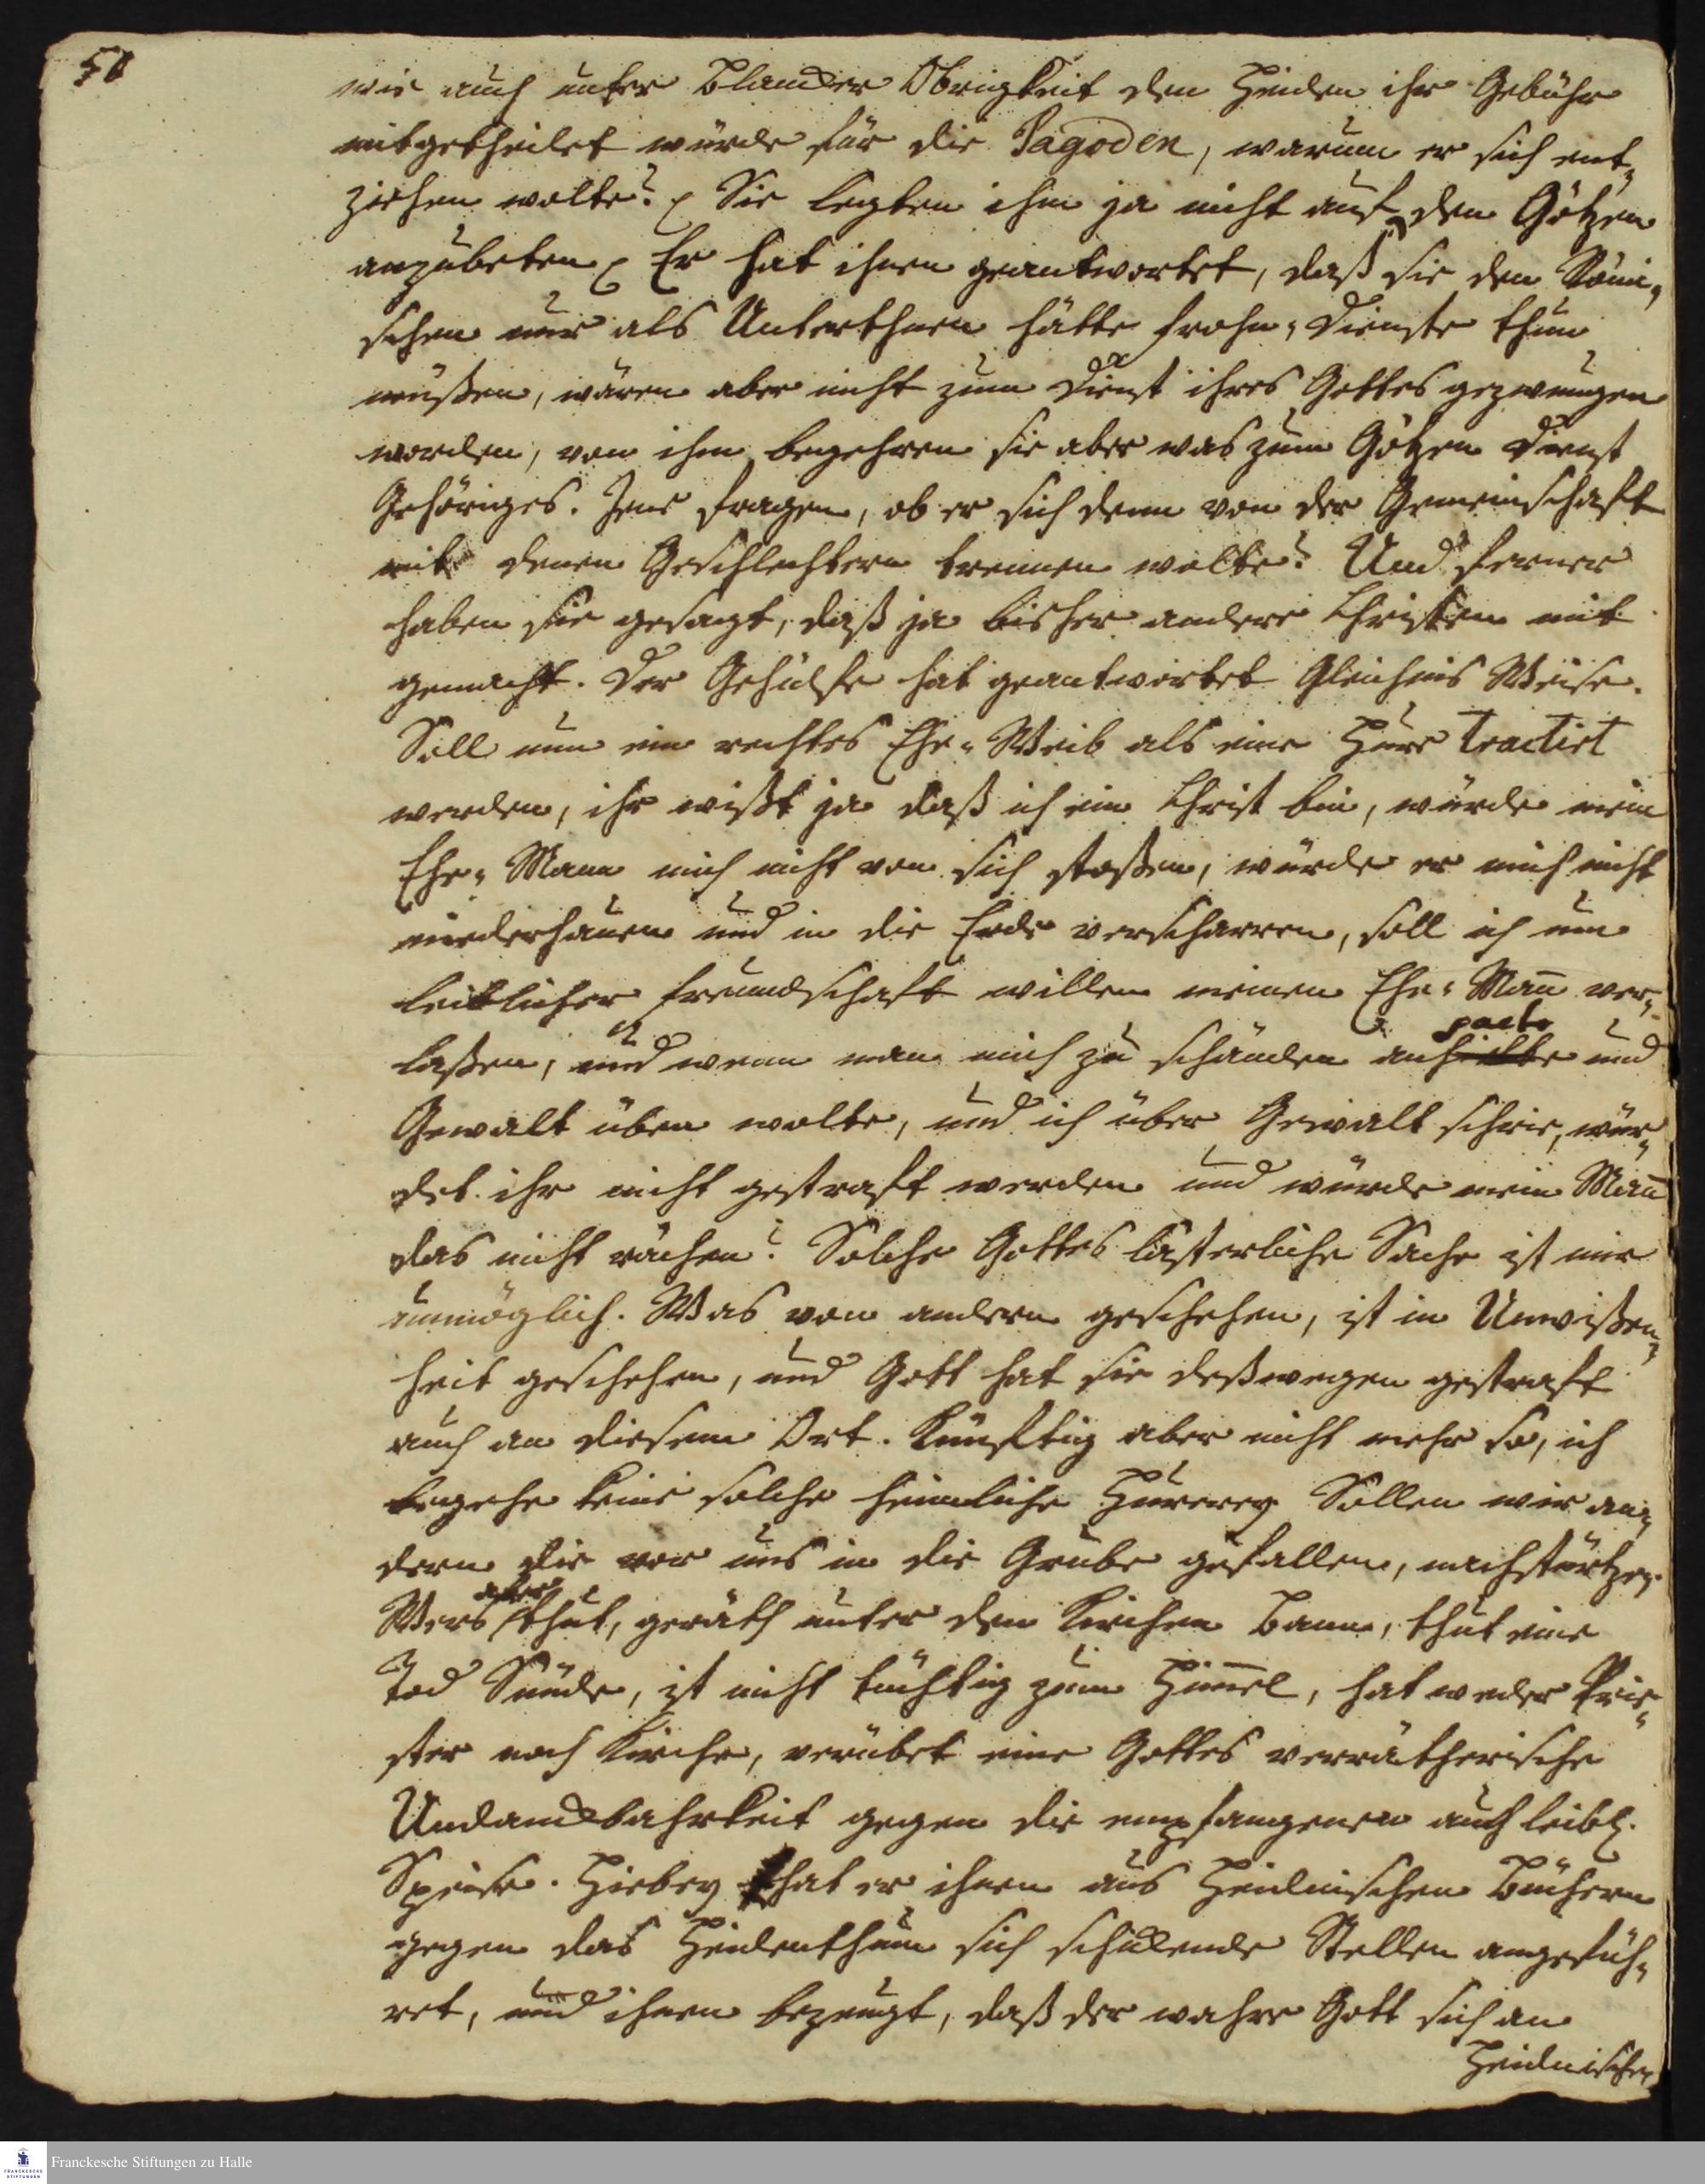 50
wie auch unter Blander Obrigkeit den Heiden ihr Gebühr
mitgetheilet würde für die Pagoden, warum er sich ent-
ziehen wolte? (Sie legten ihm ja nicht auf den Götzen
anzubeten) Er hat ihnen geantwortet, daß sie den Römi-
schen nur als Unterthanen hätte frohn-Dienste thun
müßen, wären aber nicht zum Dienst ihres Gottes gezwungen
worden, von ihm begehren sie aber was zum Götzen Dienst
Gehöriges. Jene fragen, ob er sich denn von der Gemeinschaft
mit denen Geschlechtern trennen wolte? Und ferner
haben sie gesagt, daß ja bisher andere Christen mit
gemacht. Der Gehülfe hat geantwortet Gleichnis Weise.
Soll nun ein rechtes Ehe-Weib als eine Hure tractirt
werden, ihr wißt ja daß ich ein Christ bin, würde mein
Ehe-Mann mich nicht von sich stoßen, würde er mich nicht
niederhauen und in die Erde verscharren, soll ich um
leiblicher freundschaft willen meinen Ehe-Man̄ ver-
laßen, und wenn man mich zu schänden anpackte und
Gewalt üben wolte, und ich über Gewalt schrie, wür-
det ihr nicht gestraft werden und würde mein Man̄
das nicht rächen? Solche Gottes lästerliche Sache ist mir
unmöglich. Was von andern geschehen, ist in Unwißen-
heit geschehen, und Gott hat sie deßwegen gestraft
auch an diesem Ort. Künftig aber nicht mehr so, ich
begehe keine solche heimliche Hurerey Sollen wir an-
dern die vor uns in die Grube gefallen, nachstürtzen.
Wers aber thut, geräth unter den Kirchen Bann, thut eine
Tod Sünde, ist nicht tüchtig zum Him̄el, hat weder Prie-
ster noch Kirche, verübet eine Gottes verrätherische
Undanckbahrkeit gegen die empfangenen auch leibl.
Speise. Hiebey hat er ihnen aus Heidnischen Büchern
gegen das Heidenthum sich schickende Stellen angefüh-
ret, und ihnen bezeugt, daß der wahre Gott sich an
Heidnischen
Franckesche Stiftungen zu Halle